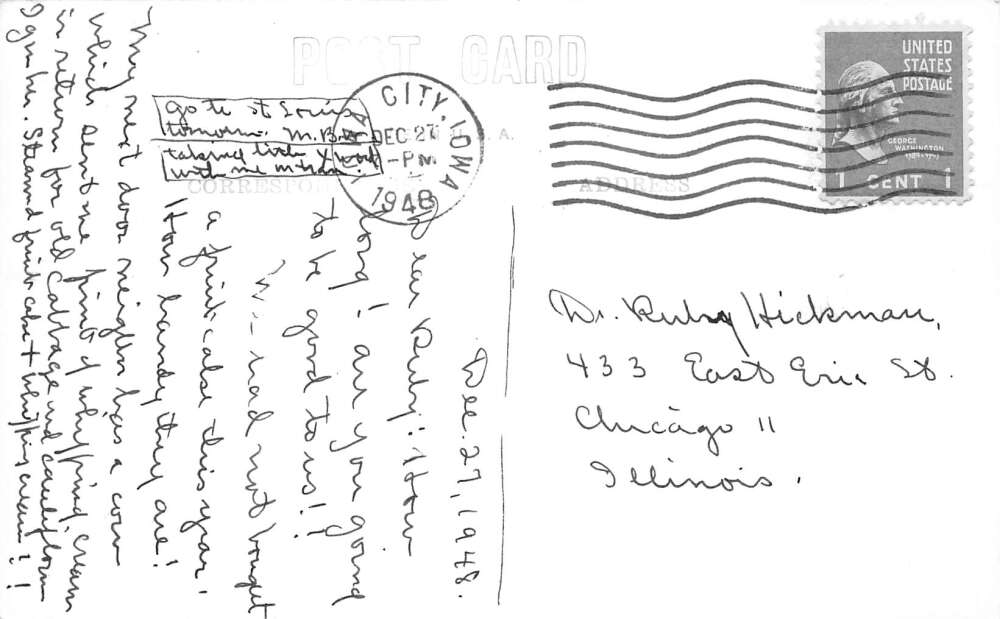 POST CARD
CITY, IOWA
DEC 27
-PM
1948
UNITED
STATES
POSTAGE
GEORGE
WASHINGTON
1 CENT 1
CORRESPON
ADDRESS
U.S.A.
Dr. Ruby Hickman,
433 East Erie St.
Chicago 11
Illinois.
Dec. 27, 1948.
Dear Ruby: How
long! are you going
to be good to us!!
We had not bought
a fruit cake this year.
How handy they are!
My next door neighbor has a cow
which sent me pint of whipping cream
in return for old cabbage and cauliflower
I gave her. Steamed fruit cake + whipping cream!!
go to St Louis
tomorrow. M.
taking work
with me